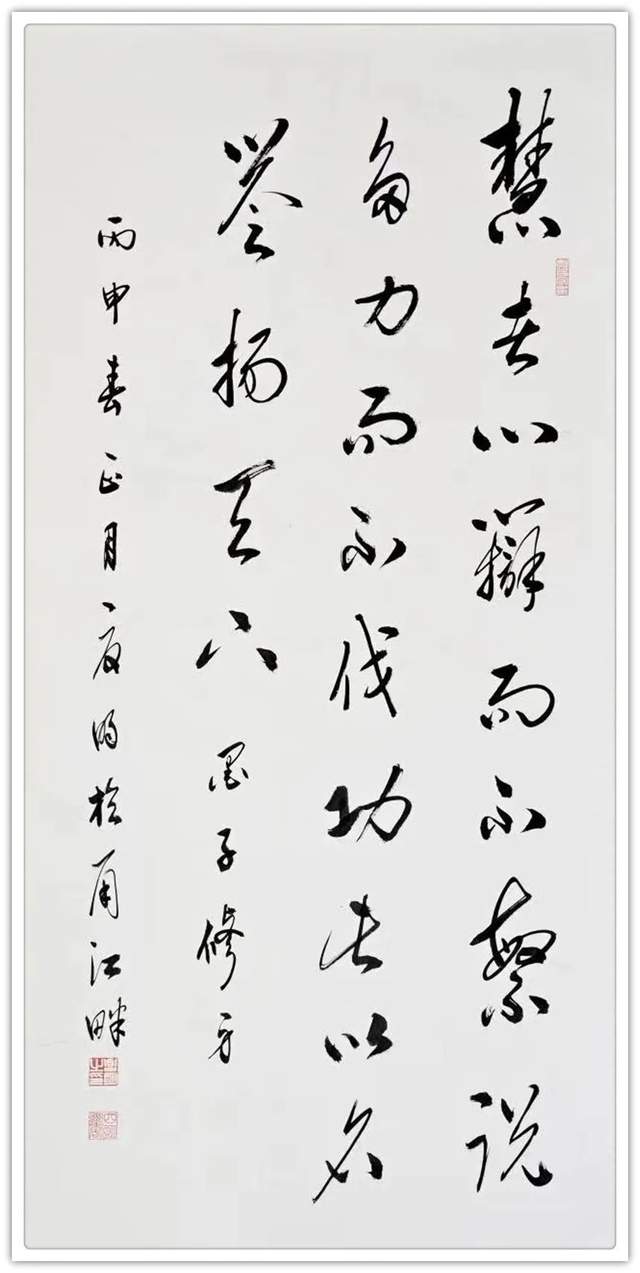 慧者心辯而不繁说
多力而不伐功此以名
誉揚天下 墨子修身
丙申春正月於甬江畔